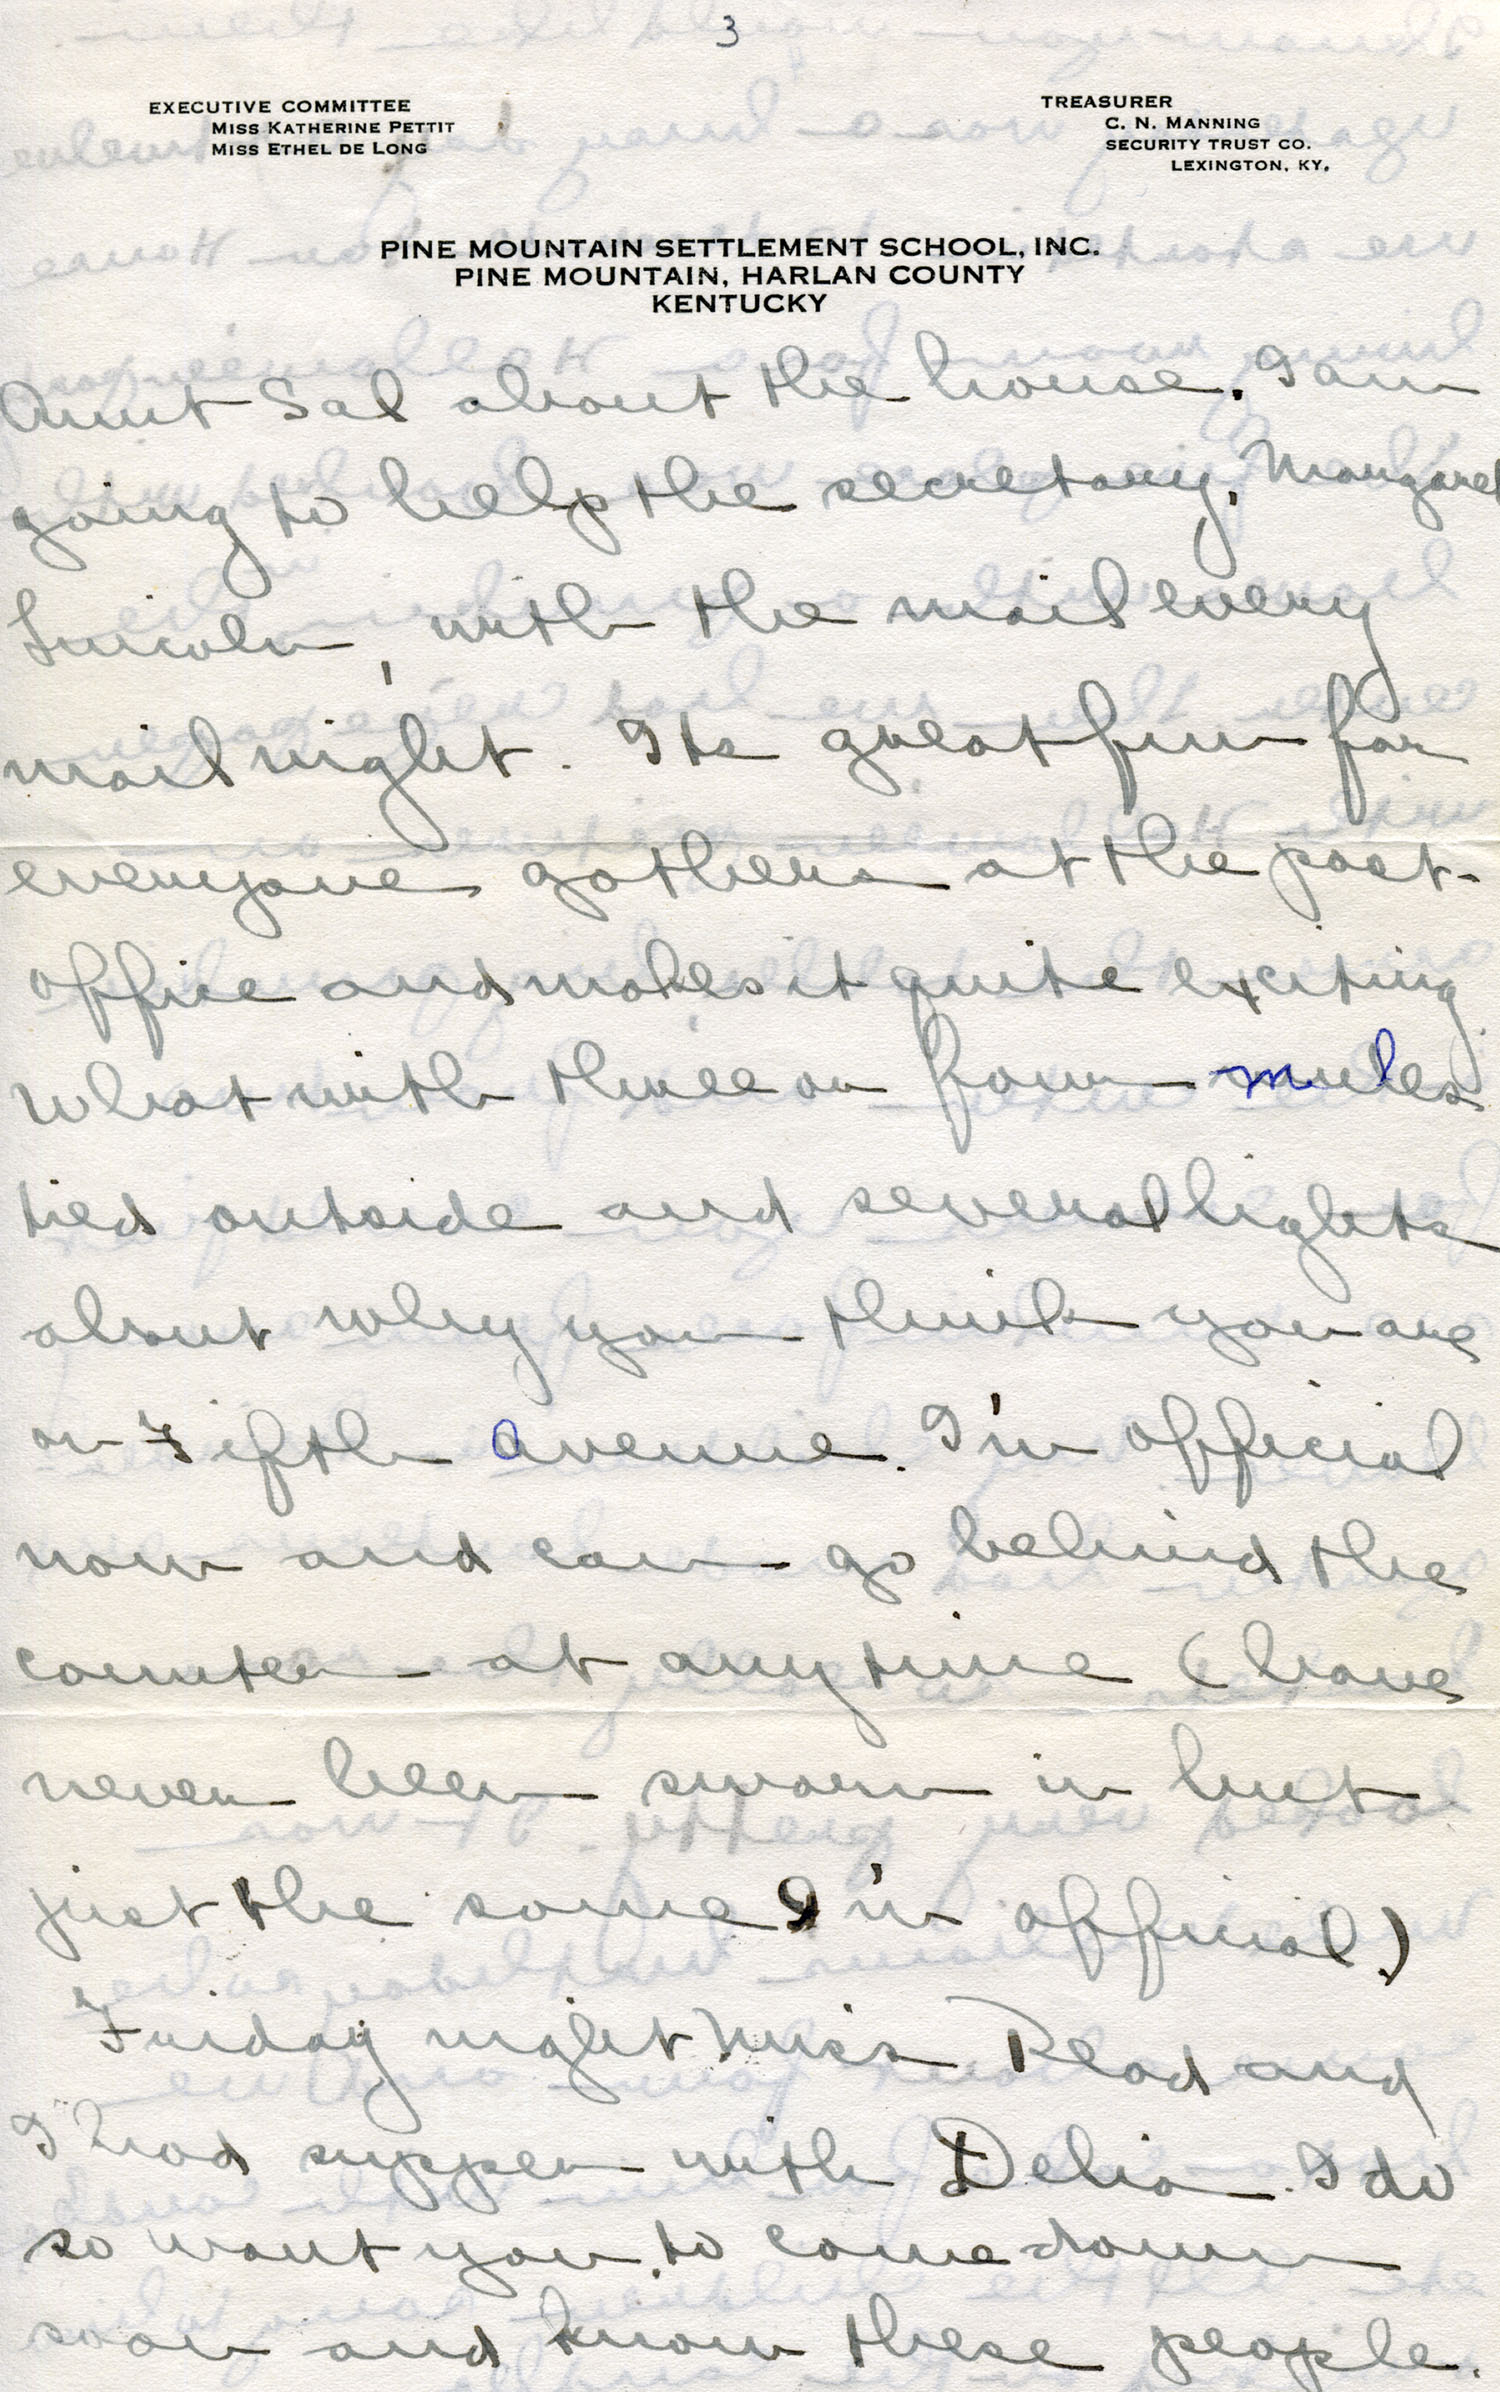 3
EXECUTIVE COMMITTEE
MISS KATHERINE PETTIT
MISS ETHEL DE LONG
TREASURER
C. N. MANNING
SECURITY TRUST CO.
LEXINGTON, KY.
PINE MOUNTAIN SETTLEMENT SCHOOL, INC.
PINE MOUNTAIN, HARLAN COUNTY
KENTUCKY
Aunt Sal about the house. I am
going to help the secretary, Margaret
Lincoln, with the mail every
mail night. Its great fun for
everyone gathers at the post-
office and makes it quite exciting.
What with three or four mules
tied outside and several lights
about why you think you are
on Fifth Avenue. I'm official
now and can go behind the
counter at anytime (have
never been sworn in but
just the same I'm official.)
Friday night Miss Read and
I had supper with Delia. I do
so want you to come down
soon and know these people.